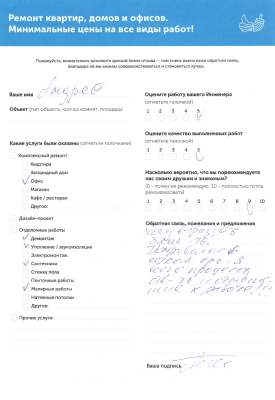 Ремонт квартир, домов и офисов.
Минимальные цены на все виды работ!
Пожалуйста, внимательно заполните данный бланк отзыва — нам очень важна ваша обратная связь,
благодаря ей мы можем совершенствоваться и становиться лучше.
Ваше имя Андрей
Объект (тип объекта, кол-во комнат, площадь)
Какие услуги были оказаны (отметьте галочками)
Комплексный ремонт
Квартира
Загородный дом
Офис
Магазин
Кафе / ресторан
Другое:
Дизайн-проект
Отделочные работы
Демонтаж
Утепление / звукоизоляция
Электромонтаж
Сантехника
Стяжка пола
Плиточные работы
Малярные работы
Натяжные потолки
Другое
Прочие услуги:
Оцените работу вашего Инженера
(отметьте галочкой)
1 2 3 4 5
Оцените качество выполненных работ
(отметьте галочкой)
1 2 3 4 5
Насколько вероятно, что вы порекомендуете
нас своим друзьям и знакомым?
(0 - точно не рекомендую, 10 - полностью готов
рекомендовать)
1 2 3 4 5 6 7 8 9 10
Обратная связь, пожелания и предложения
всего процесса
к работе!!!
Ваша подпись